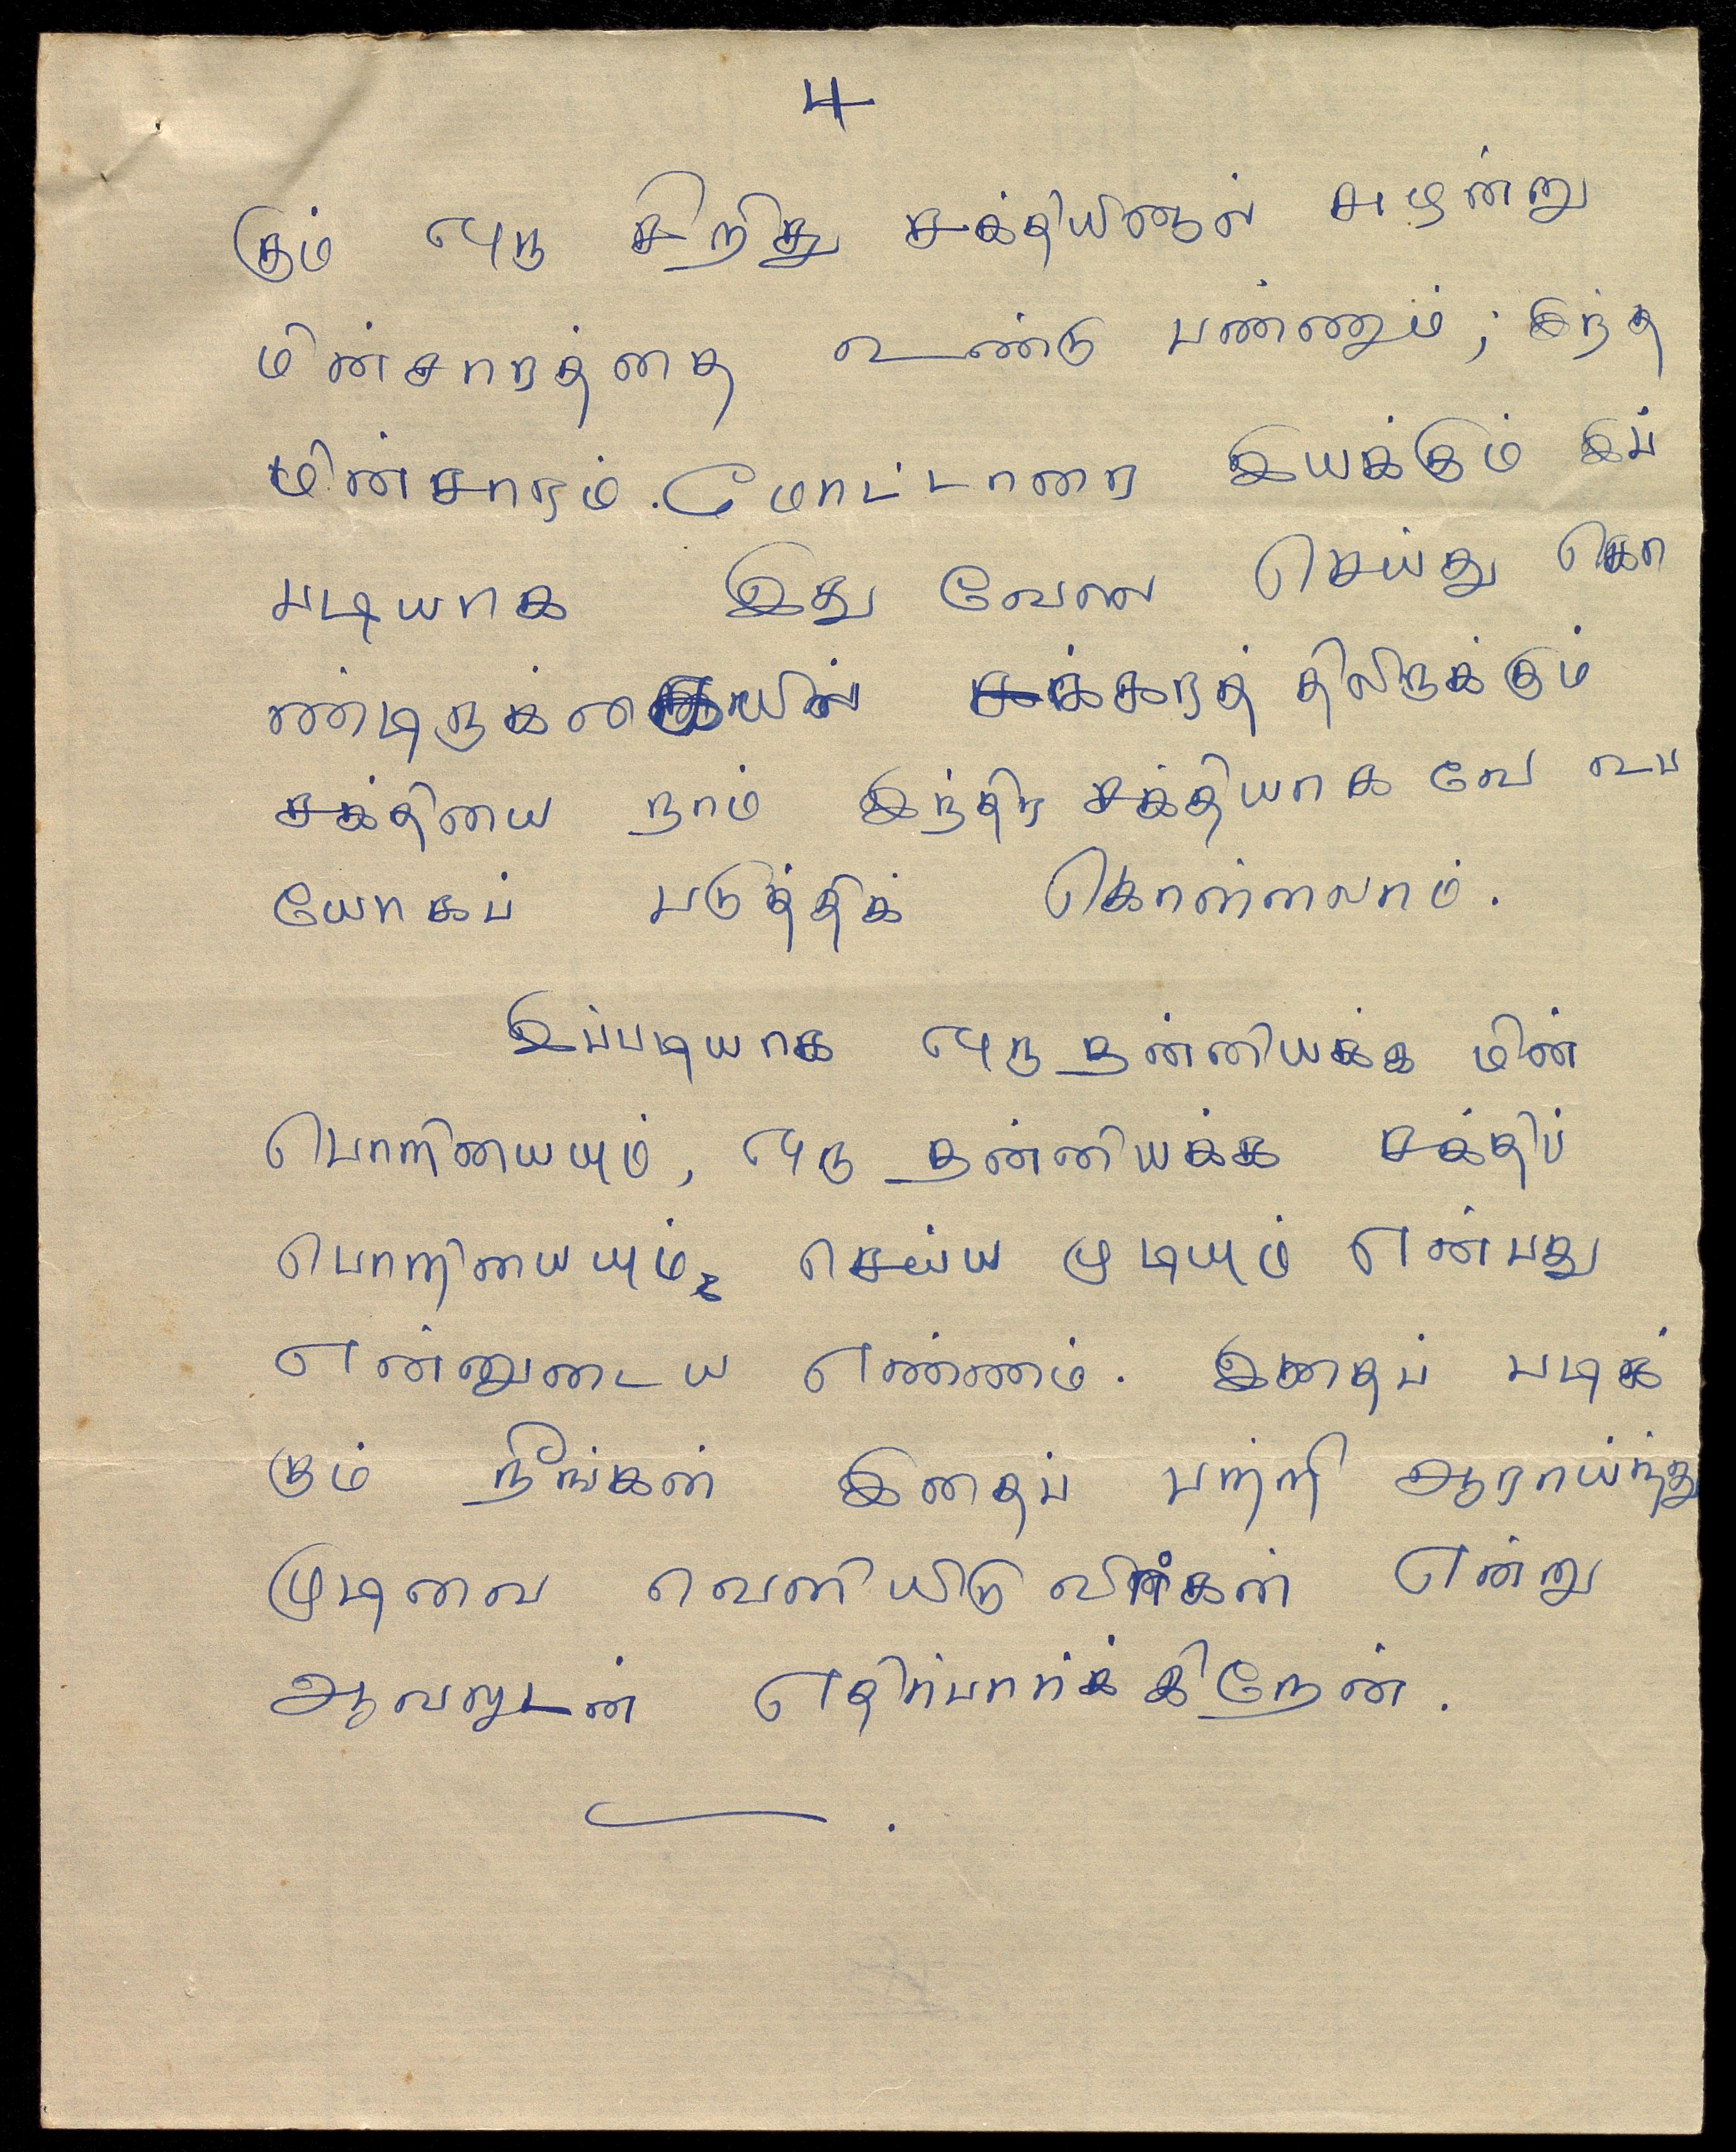 4
கும் ஒரு சிறிது சக்தியினால் சுழன்று
மின்சாரத்தை உண்டு பண்ணும்; இந்த
மின்சாரம் மோட்டாரை இயக்கும் இப்
படியாக இது வேலை செய்து கொ
ண்டிருக்கையில் சக்கரத்திலிருக்கும்
சக்தியை நாம் இந்திர சக்தியாகவே உப
யோகப் படுத்திக் கொள்ளலாம்.
இப்படியாக ஒரு தன்னியக்க மின்
பொறியையும், ஒரு தன்னியக்க சக்திப்
பொறியையும் செய்ய முடியும் என்பது
என்னுடைய எண்ணம். இதைப் படிக்
கும் நீங்கள் இதைப் பற்றி ஆராய்ந்து
முடிவை வெளியிடுவிர்கள் என்று
ஆவலுடன் எதிர்பார்க்கிறேன்.